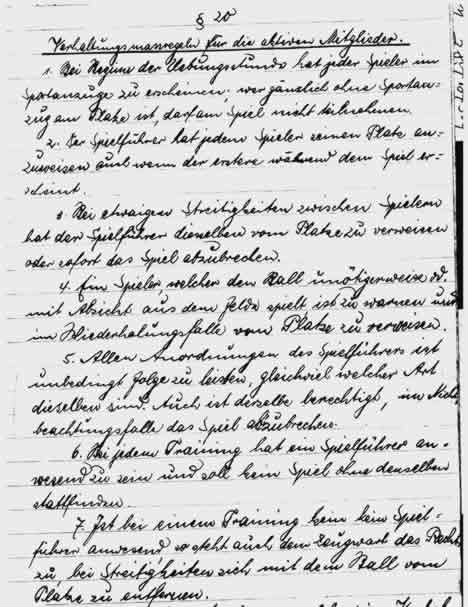 § 20
Verhaltungsmasregeln für die aktiven Mitglieder.
1. Bei Beginn der Uebungsstunde hat jeder Spieler im
Sportanzuge zu erscheinen. wer gänzlich ohne Sportan-
zug am Platze ist, darf am Spiel nicht teilnehmen.
2. Der Spielführer hat jedem Spieler seinen Platz an-
zuweisen auch wenn der erstere während dem Spiel er-
scheint.
3. Bei etwaigen Streitigkeiten zwischen Spielern
hat der Spielführer dieselben vom Platze zu verweisen
oder sofort das Spiel abzubrechen.
4. Ein Spieler welcher den Ball unnötigerweise od.
mit Absicht aus dem Felde spielt ist zu warnen und
im Wiederholungsfalle vom Platze zu verweisen.
5. Allen Anordnungen des Spielführers ist
unbedingt Folge zu leisten, gleichviel welcher Art
dieselben sind. Auch ist derselbe berechtigt, im Nicht-
beachtungsfalle das Spiel abzubrechen.
6. Bei jedem Training hat ein Spielführer an-
wesend zu sein und soll kein Spiel ohne denselben
stattfinden.
7. Ist bei einem Training kein Spiel-
führer anwesend so steht auch dem Zeugwart das Recht
zu, bei Streitigkeiten sich mit dem Ball vom
Platze zu entfernen.